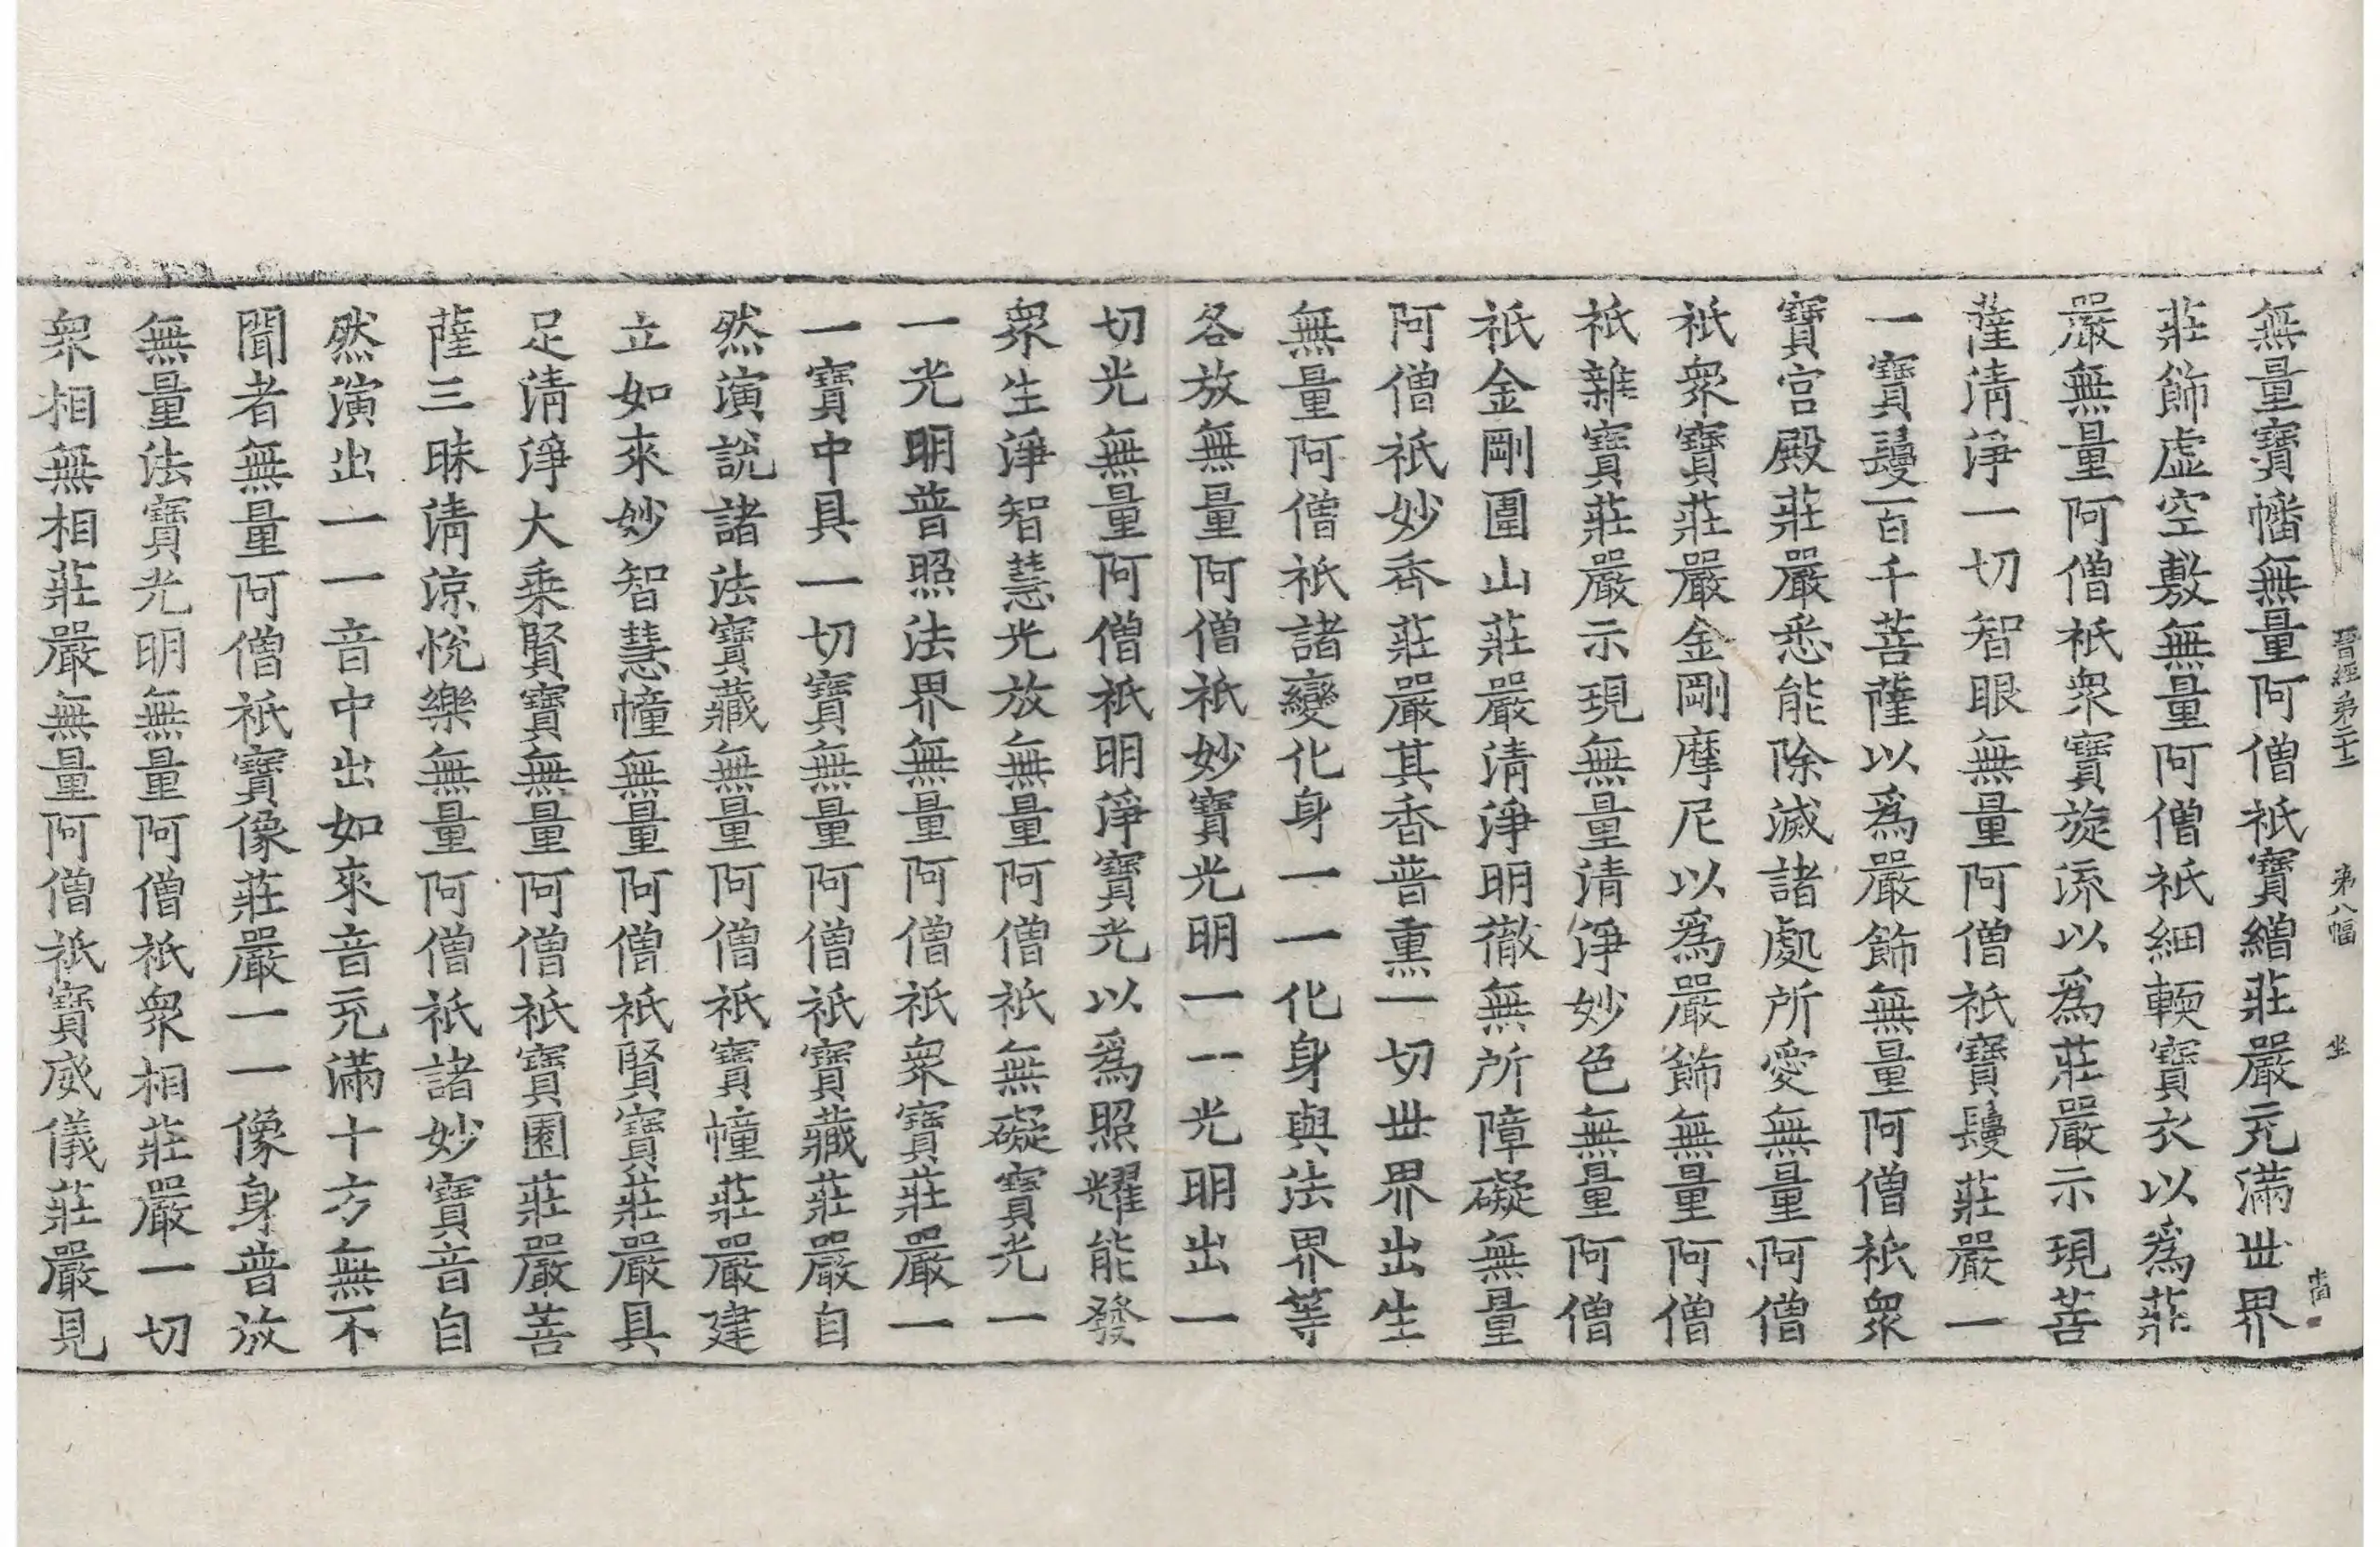 晉經第二十三 第八幅 坐
無量寶幡無量阿僧祇寶繒莊嚴充滿世界
莊飾虛空敷無量阿僧祇細輭寶衣以爲莊
嚴無量阿僧祇衆寶旋流以爲莊嚴示現菩
薩淸淨一切智眼無量阿僧祇寶鬘莊嚴一
一寶鬘百千菩薩以爲嚴飾無量阿僧祇衆
寶宮殿莊嚴悉能除滅諸處所愛無量阿僧
祇衆寶莊嚴金剛摩尼以爲嚴飾無量阿僧
祇雜寶莊嚴示現無量清淨妙色無量阿僧
祇金剛圍山莊嚴淸淨明徹無所障礙無量
阿僧祇妙香莊嚴其香普熏一切世界出生
無量阿僧祇諸變化身一一化身與法界等
各放無量阿僧祇妙寶光明一一光明出一
切光無量阿僧祇明淨寶光以爲照耀能發
衆生淨智慧光放無量阿僧祇無礙寶光一
一光明普照法界無量阿僧祇衆寶莊嚴一
一寶中具一切寶無量阿僧祇寶藏莊嚴自
然演說諸法寶藏無量阿僧祇寶幢莊嚴建
立如來妙智慧幢無量阿僧祇賢寶莊嚴具
足淸淨大乘賢寶無量阿僧祇寶園莊嚴菩
薩三昧淸涼悅樂無量阿僧祇諸妙寶音自
然演出一一音中出如來音充滿十方無不
聞者無量阿僧祇寶像莊嚴一一像身普放
無量法寶光明無量阿僧祇衆相莊嚴一切
衆相無相莊嚴無量阿僧祇寶威儀莊嚴見